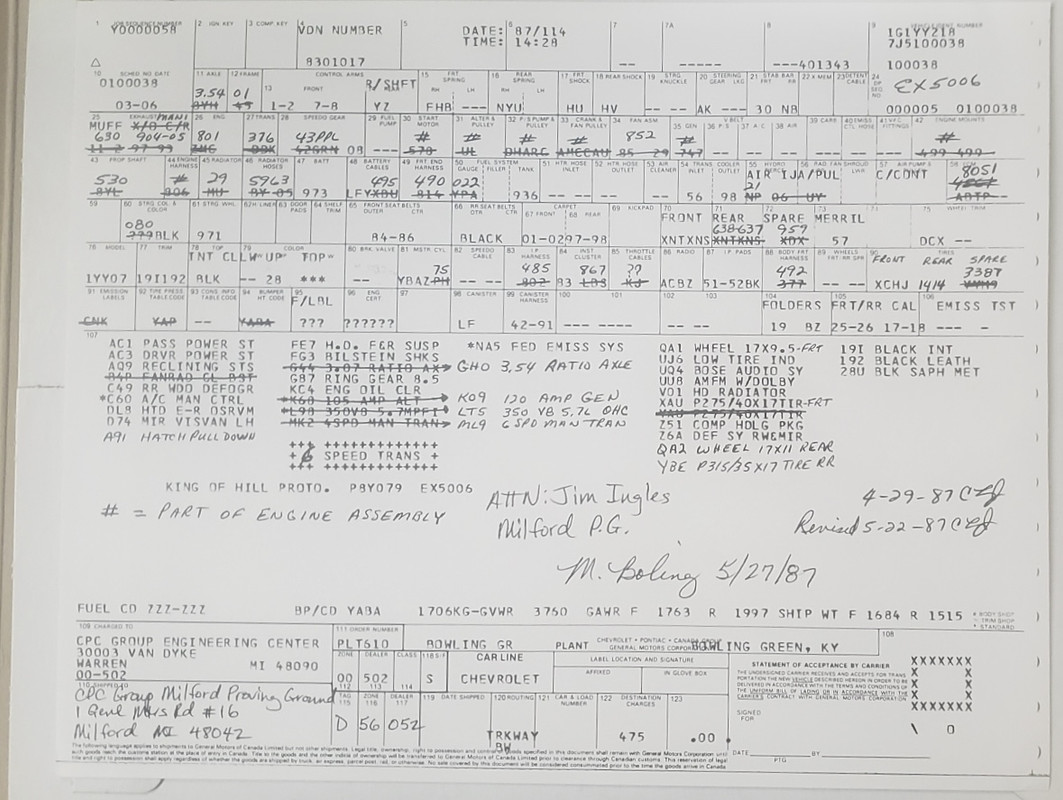 1 JOB SEQUENCE NUMBER 2 IGN KEY 3 COMP. KEY 4 5 6 7 7A 8 9 VEHICLE IDENT NUMBER
Y0000058 VDN NUMBER DATE: '87/114 1G1YY218
TIME: 14:28 7J5100038
△ 8301017 -- ----- -----401343 100038
10 SCHED. NO. DATE 11 AXLE 12 FRAME CONTROL ARMS 15 FRT SPRING 16 REAR SPRING 17 FRT SHOCK 18 REAR SHOCK 19 STRG KNUCKLE 20 STEERING GEAR LKG 21 STAB BAR FRT RR 22 X MEM 23 DETENT CABLE 24 OP SEQ. NO.
0100038 3.54 01 13 R/SHFT RH LH RH LH EX5006
03-06 BYH 45 1-2 7-8 YZ FHB --- NYU HU HV -- AK --- 30 NB 000005 0100038
25 EXHAUST 26 ENG 27 TRANS 28 SPEEDO GEAR 29 FUEL PUMP 30 START MOTOR 31 ALTER & PULLEY 32 P/S PUMP & PULLEY 33 CRANK & FAN PULLEY 34 FAN ASM 35 GEN V BELT 36 P/S 37 A/C 38 AIR 39 CARB 40 EMISS CTL HOSE 41 VAC FITTINGS 42 ENGINE MOUNTS
MUFF X/O C/R MANI
630 904-05 801 376 43PPL # # # # 852 # #
11-2 97-99 ZMC DBK 42GRN 08 --- 578 UL DHARC AMCCAU 85 29 747 499 499
43 PROP SHAFT 44 ENGINE HARNESS 45 RADIATOR 46 RADIATOR HOSES 47 BATT 48 BATTERY CABLES 49 FRT END HARNESS 50 FUEL SYSTEM GAUGE FILLER TANK 51 HTR. HOSE INLET 52 HTR. HOSE OUTLET 53 AIR CLEANER 54 TRANS COOLER INLET OUTLET 55 HYDRO 56 RAD. FAN SHROUD LWR 57 AIR PUMP & 58 ECM
AIR IJA/PUL C/CONT 8051
530 # 29 5963 495 490 022 21
BYL 806 MU BY 05 973 LFYXBU 814 YPA 936 --- 56 98 NP 06 UY ADTP
59 60 STRG COL & COLOR 61 STRG WHL 62 H LINER 63 DOOR PADS 64 SHELF TRIM 65 FRONT SEAT BELTS OUTER CTR 66 RR SEAT BELTS OTR CTR CARPET 67 FRONT 68 REAR 69 KICKPAD 70 71 72 73 74 75 WHEEL TRIM
FRONT REAR SPARE MERRIL
080 638-637 959
??9BLK 971 84-86 BLACK 01-0297-98 XNTXNS XNTKNS XDX 57 DCX --
76 MODEL 77 TRIM 78 TOP 79 COLOR 80 BRK. VALVE 81 MSTR. CYL 82 SPEEDO CABLE 83 I.P. HARNESS 84 INST CLUSTER 85 THROTTLE CABLES 86 RADIO 87 I.P. PADS 88 BODY FRT HARNESS 89 WHEELS FRT RR SPR 90 TIRES
TNT CLLW"UP" TOP" FRONT REAR SPARE
75 485 867 ?? 492 3387
1YY07 19I192 BLK -- 28 *** -- YBAZPH -- -- 802 83 LBS KJ ACBZ 51-52BK 377 -- -- XCHJ 1414 WYM9
91 EMISSION LABELS 92 TIRE PRESS TABLE CODE 93 CONS. INFO TABLE CODE 94 BUMPER HT. CODE 95 96 ENG CERT 97 98 CANISTER 99 CANISTER HARNESS 100 101 102 103 104 105 106
F/LBL FOLDERS FRT/RR CAL EMISS TST
CNK YAP -- YABA ??? ?????? LF 42-91 --- ---- -- -- 19 BZ 25-26 17-18 --- -
107
AC1 PASS POWER ST FE7 H.D. FGR SUSP *NA5 FED EMISS SYS QA1 WHEEL 17X9.5-FRT 19I BLACK INT
AC3 DRVR POWER ST FG3 BILSTEIN SHKS UJ6 LOW TIRE IND 192 BLACK LEATH
AQ9 RECLINING STS G44 3.07 RATIO AX GHO 3.54 RATIO AXLE UQ4 BOSE AUDIO SY 28U BLK SAPH MET
B4P FANRAD GL BST G87 RING GEAR 8.5 UU8 AMFM W/DOLBY
C49 RR WDO DEFOGR KC4 ENG OIL CLR V01 HD RADIATOR
*C60 A/C MAN CTRL *K68 105 AMP ALT KO9 120 AMP GEN XAU P275/40X17TIR-FRT
DL8 HTD E-R OSRVM *L98 350V8 5.7MPFI LT5 350 V8 5.7L OHC YAU P275/40X17TIR
D74 MIR VISVAN LH MK2 4SPD MAN TRAN ML9 6 SPD MAN TRAN Z51 COMP HDLG PKG
A91 HATCH PULL DOWN Z6A DEF SY RW&MIR
+++++++++++++++++ QA2 WHEEL 17X11 REAR
+ 6 SPEED TRANS + YBE P315/35X17 TIRE RR
+++++++++++++++++
KING OF HILL PROTO. P8Y079 EX5006
# = PART OF ENGINE ASSEMBLY
ATTN: Jim Ingles
Milford P.G.
4-29-87 CEJ
Revised 5-22-87 CEJ
M. Boling 5/27/87
FUEL CD ZZZ-ZZZ BP/CD YABA 1706KG-GVWR 3760 GAWR F 1763 R 1997 SHIP WT F 1684 R 1515 * BODY SHOP
* TRIM SHOP
* STANDARD
109 CHARGED TO 111 ORDER NUMBER CHEVROLET • PONTIAC • CANADA GROUP 108
CPC GROUP ENGINEERING CENTER PLT610 BOWLING GR PLANT GENERAL MOTORS CORPORATION BOWLING GREEN, KY
30003 VAN DYKE ZONE DEALER CLASS 118 S/S CAR LINE LABEL LOCATION AND SIGNATURE
WARREN MI 48090 AFFIXED IN GLOVE BOX
00-502 00 502 S CHEVROLET
112 113 114
STATEMENT OF ACCEPTANCE BY CARRIER
THE UNDERSIGNED CARRIER RECEIVES AND ACCEPTS FOR TRANSPORTATION THE NEW VEHICLE DESCRIBED HEREON IN ORDER TO BE DELIVERED IN ACCORDANCE WITH THE TERMS AND CONDITIONS OF THE UNIFORM BILL OF LADING OR IN ACCORDANCE WITH THE CARRIER'S CONTRACT WITH GENERAL MOTORS CORPORATION
XXXXXXX
X X
X X
X X
XXXXXXX
110 SHIPPED TO
CPC Group Milford Proving Ground
1 Genl Mtrs Rd #16
Milford MI 48042
TAG ZONE DEALER 119 DATE SHIPPED 120 ROUTING 121 CAR & LOAD NUMBER 122 DESTINATION CHARGES 123
115 116 117
D 56 052 TRKWAY 475 .00
BW
SIGNED FOR \ 0
DATE BY
PTG
The following language applies to shipments to General Motors of Canada Limited but not other shipments.